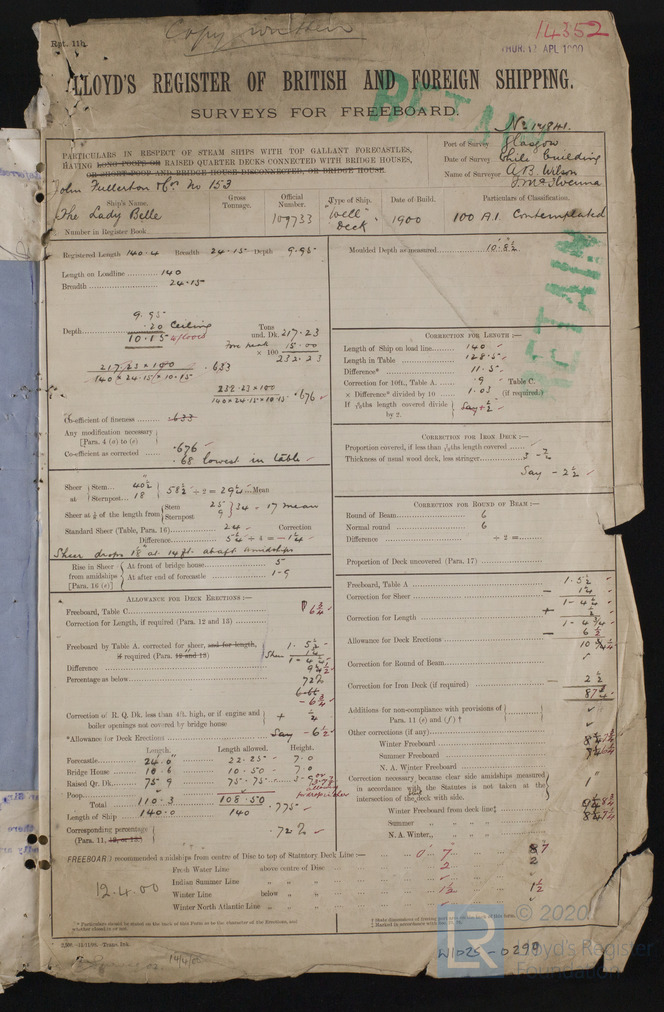 Copy written
14352
Rpt. 11b.
LLOYD'S REGISTER OF BRITISH AND FOREIGN SHIPPING.
SURVEYS FOR FREEBOARD.
RETAIN
PARTICULARS IN RESPECT OF STEAM SHIPS WITH TOP GALLANT FORECASTLES,
HAVING LONG POOPS OR RAISED QUARTER DECKS CONNECTED WITH BRIDGE HOUSES,
OR SHORT POOP AND BRIDGE HOUSE DISCONNECTED, OR BRIDGE HOUSE
Port of Survey Glasgow
Date of Survey While building
Name of Surveyor A.B. Wilson
John Fullerton & Co. No 153
Ship's Name.
Gross Tonnage.
Official Number.
Type of Ship.
Date of Build.
Particulars of Classification.
The Lady Belle
109733
"Well" Deck
1900
100 A.1. Contemplated
Number in Register Book
Registered Length 140.4 Breadth 24.15 Depth 9.95
Moulded Depth as measured 10.8½
Length on Loadline 140
Breadth 24.15
9.95
Depth .20 Ceiling
10.15
Tons und. Dk. 217.23
Fore peak 15.00
× 100 232.23
217.23 × 100
140 × 24.15 × 10.15 .633
232.23 × 100
140 × 24.15 × 10.15 .676
Co-efficient of fineness .633
Any modification necessary
[Para. 4 (a) to (e)]
Co-efficient as corrected .676
.68 lowest in table
CORRECTION FOR LENGTH :—
Length of Ship on load line 140
Length in Table 128.5
Difference* 11.5
Correction for 10ft., Table A. .9 Table C.
× Difference* divided by 10 1.03 (if required.)
If 6/10ths length covered divide by 2. Say + ½
CORRECTION FOR IRON DECK :—
Proportion covered, if less than 7/10ths length covered
Thickness of usual wood deck, less stringer 3 - ½
Say - 2½
Sheer at
Stem 40½
Sternpost 18
58½ ÷ 2 = 29¼ Mean
Sheer at ⅛ of the length from
Stem 25
Sternpost 9
34 = 17 mean
Standard Sheer (Table, Para. 16) 24 Correction
Difference 5¼ ÷ 4 = - 1¼
Sheer drops 18" at 14 ft. abaft amidships
Rise in Sheer from amidships [Para. 16 (e)]
At front of bridge house 5
At after end of forecastle 1-9
CORRECTION FOR ROUND OF BEAM :—
Round of Beam 6
Normal round 6
Difference ÷ 2 =
Proportion of Deck uncovered (Para. 17)
ALLOWANCE FOR DECK ERECTIONS :—
Freeboard, Table C. 6¾
Correction for Length, if required (Para. 12 and 13)
Freeboard by Table A. corrected for sheer, and for length,
if required (Para. 12 and 13)
1. 5½
Sheer 1¼
1 - 4¼
Difference 9½
Percentage as below 72%
- 6¾
Correction of R. Q. Dk. less than 4ft. high, or if engine and
boiler openings not covered by bridge house + ¼
*Allowance for Deck Erections Say - 6½
Length. Length allowed. Height.
Forecastle 24.0 22.25 7.0
Bridge House 10.6 10.50 7.0
Raised Qr. Dk. 75.9 75.75
Poop
Total 110.3 108.50
Length of Ship 140.0 140 .775
Corresponding percentage
(Para. 11, 12, or 13) 72%
Freeboard, Table A 1. 5½
Correction for Sheer - 1¼
1 - 4¼
Correction for Length + ½
1 - 4¾
Allowance for Deck Erections - 6½
10¼
Correction for Round of Beam
Correction for Iron Deck (if required) - 2½
Additions for non-compliance with provisions of
Para. 11 (e) and (f) †
Other corrections (if any)
Winter Freeboard
Summer Freeboard
N. A. Winter Freeboard
Correction necessary because clear side amidships measured
as compared with the Statutes is not taken at the
intersection of deck with side. 1"
Winter Freeboard from deck line‡
Summer " "
N. A. Winter " "
FREEBOARD recommended amidships from centre of Disc to top of Statutory Deck Line :— 0' 7"
Fresh Water Line above centre of Disc 2 2
Indian Summer Line " "
Winter Line below " " 1½ 1½
Winter North Atlantic Line " "
12.4.00
2,500.—11/11/98.—Trans. Ink.
W1025-0299
© 2020
LR
Lloyd's Register
Foundation